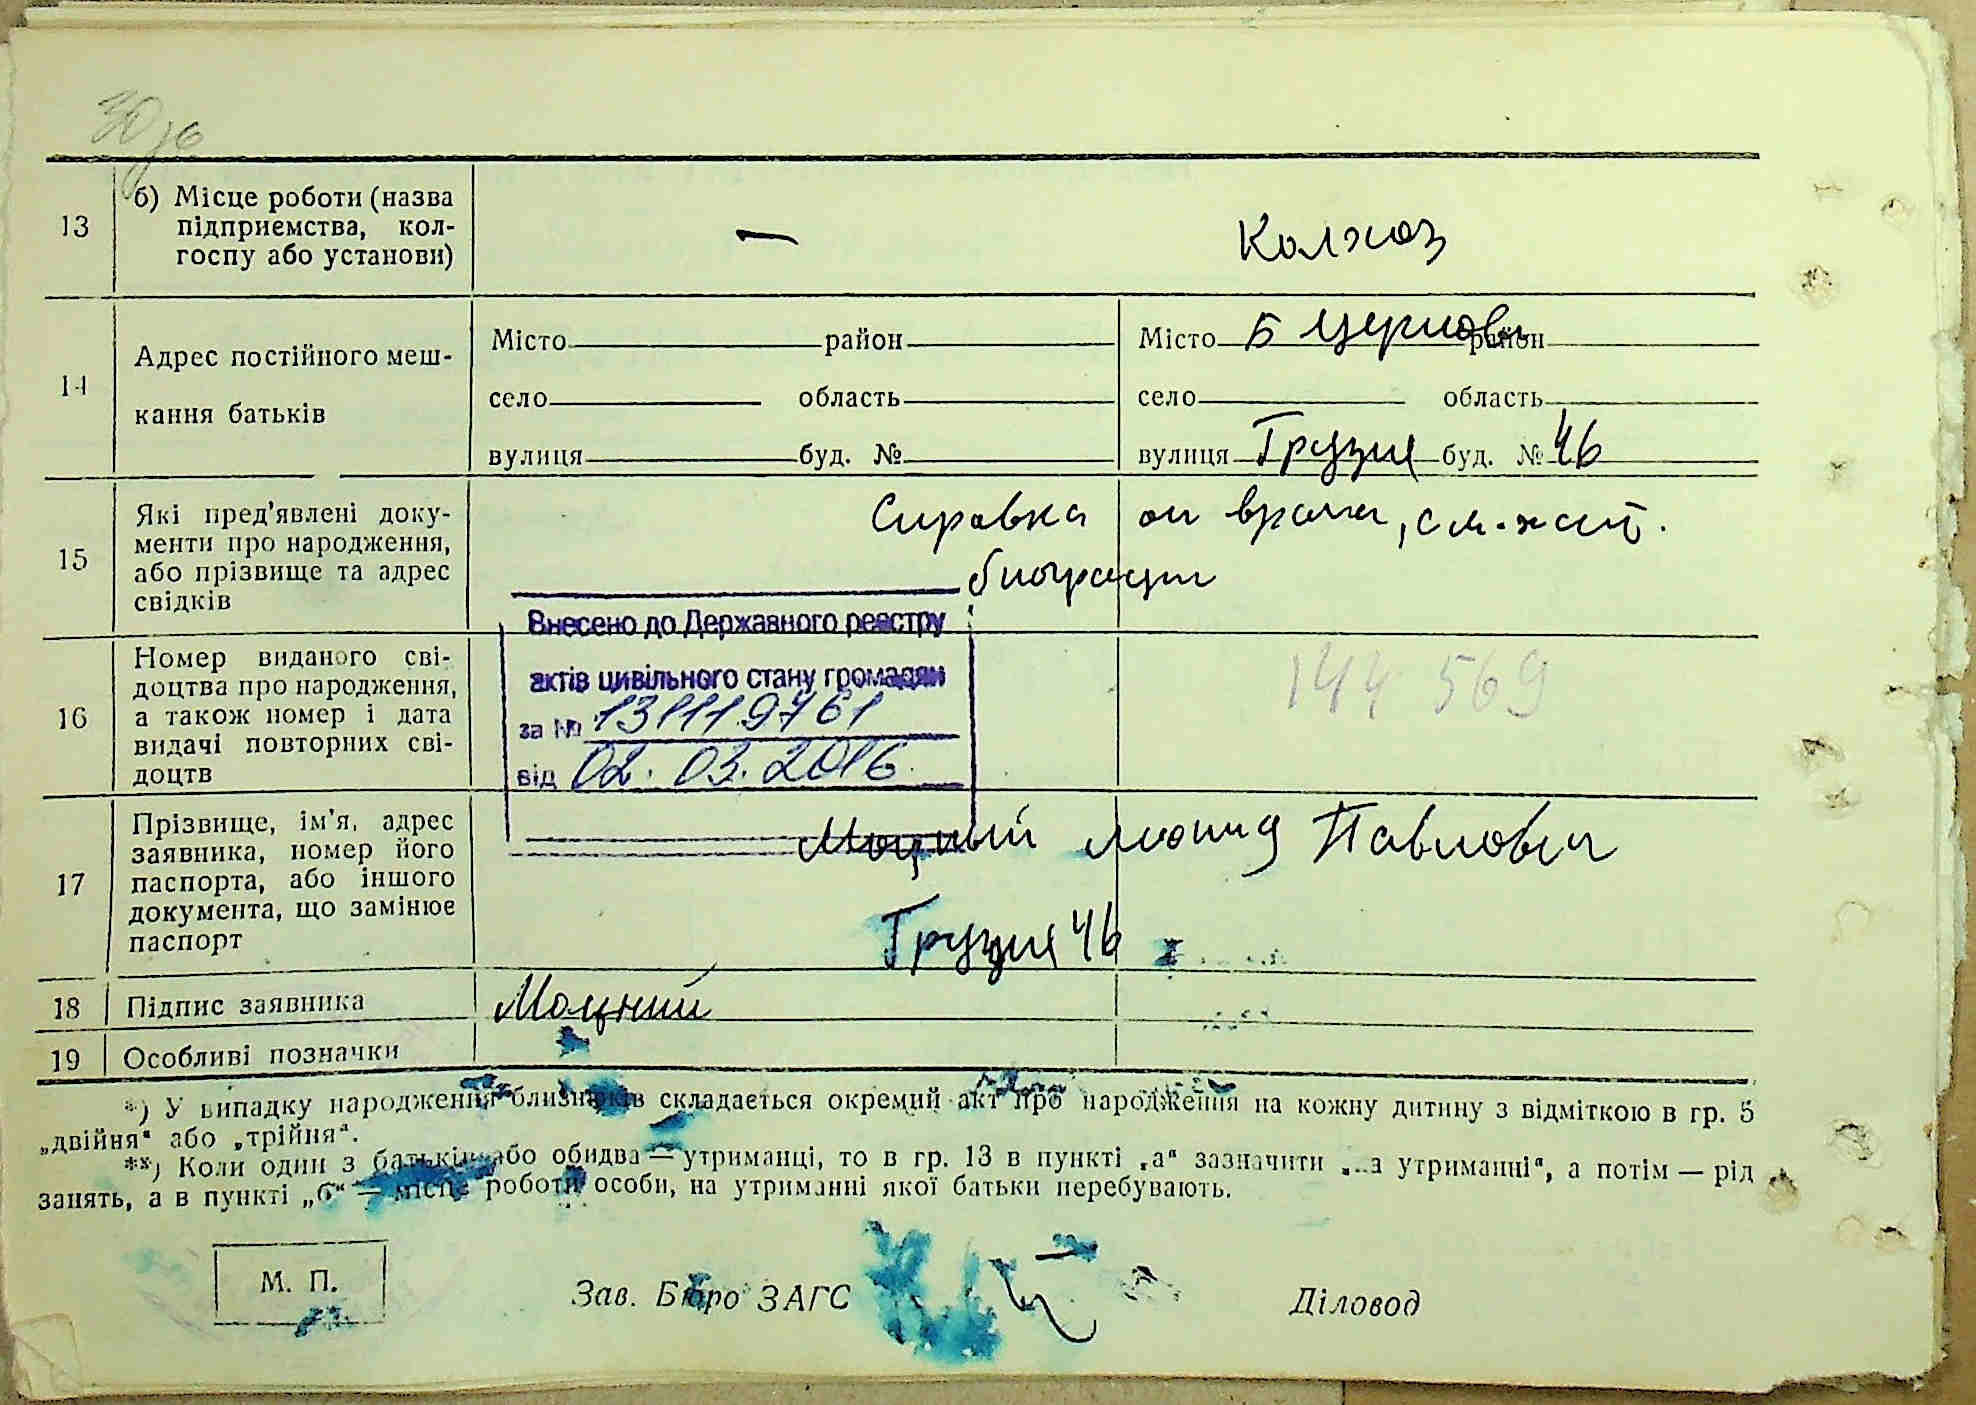 30
13
б) Місце роботи (назва
підприємства, кол-
госпу або установи)
—
Колхоз
14
Адрес постійного меш-
кання батьків
Місто район
село область
вулиця буд. №
Місто Б Церковь район
село область
вулиця Грузия буд. № 46
15
Які пред'явлені доку-
менти про народження,
або прізвище та адрес
свідків
Справка от врача,
16
Номер виданого сві-
доцтва про народження,
а також номер і дата
видачі повторних сві-
доцтв
Внесено до Державного реєстру
актів цивільного стану громадян
за № 131119761
від 02.03.2016
144 569
17
Прізвище, ім'я, адрес
заявника, номер його
паспорта, або іншого
документа, що замінює
паспорт
Моцный Леонид Павлович
Грузия 46
18
Підпис заявника
Моцний
19
Особливі позначки
*) У випадку народження близнюків складається окремий акт про народження на кожну дитину з відміткою в гр. 5
„двійня“ або „трійня“.
**) Коли один з батьків або обидва — утриманці, то в гр. 13 в пункті „а“ зазначити „на утриманні“, а потім — рід
занять, а в пункті „б“ — місце роботи особи, на утриманні якої батьки перебувають.
М. П.
Зав. Бюро ЗАГС
Діловод